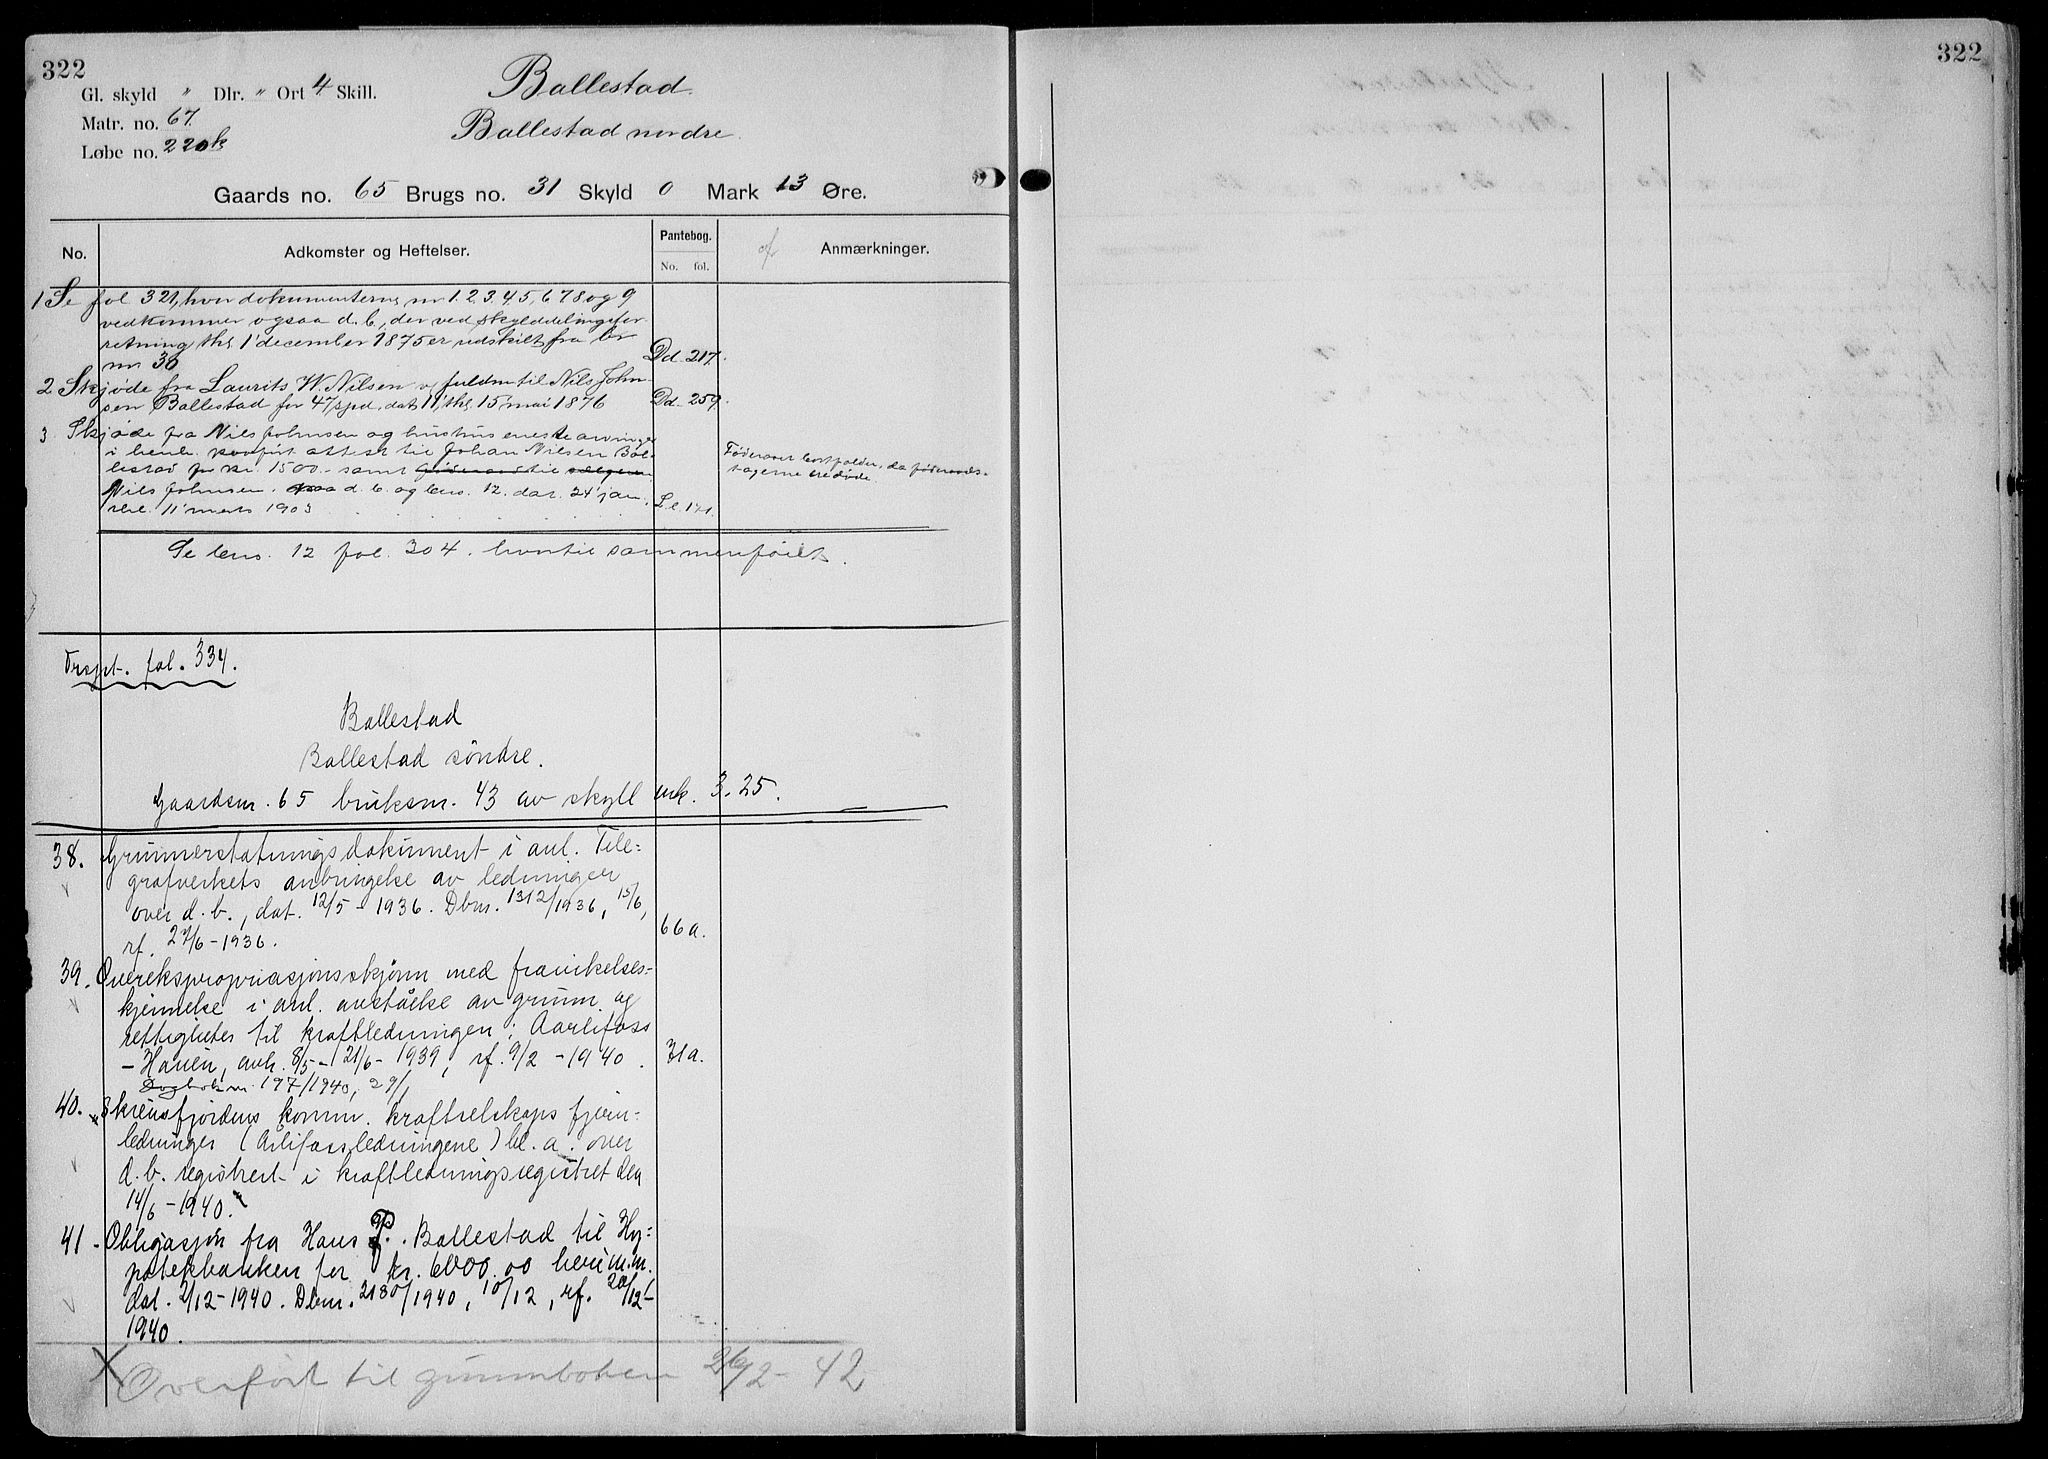 322
Gl. skyld " Dlr. " Ort 4 Skill.
Matr. no. 67.
Løbe no. 220k
Ballestad.
Ballestad nordre.
Gaards no. 65 Brugs no. 31 Skyld 0 Mark 13 Øre.
No. Adkomster og Heftelser. Pantebog. No. fol. Anmærkninger.
1 Se fol 321, hvor dokumenterne nr 1.2.3.4.5.6 7 8 og 9
vedkommer ogsaa d. b., der ved skylddelingsfor-
retning thl. 1' december 1875 er udskilt fra br
nr 30 Dd. 217.
2 Skjøde fra Laurits W. Nilsen og fuldm til Nils John-
sen Ballestad for 47 spd. dat. 11', thl. 15' mai 1876 Dd. 259.
3 Skjøde fra Nils Johnsen og hustrus eneste arvinger
i henh. attest til Johan Nilsen Bal-
lestad for kr. 1500.- samt føderaad til sælgeren
Nils Johnsen. paa d. b. og brno. 12. dat. 24' jan.
11' marts 1903 171.
Føderaad bortfalder, da føderaads-
tagerne ere døde.
Se brno. 12 fol. 304. hvortil sammenføiet.
Trspt. fol. 334.
Ballestad
Ballestad søndre.
Gaardsnr. 65 bruksnr. 43 av skyll mk. 3.25.
38. Grunnerstatningsdokument i anl. Tele=
grafverkets anbringelse av ledninger
over d. b., dat. 12/5 - 1936. Dbnr. 1312/1936, 15/6,
rf. 27/6 - 1936. 66a.
39. Overekspropriasjonsskjønn med fravikelses=
kjennelse i anl. avståelse av grunn og
rettigheter til kraftledningen: Aarlifoss
- Hauen, avh. 8/5 - 21/6 - 1939, rf. 9/2 - 1940. 31a.
Dagbok nr. 197/1940, 29/1
40. "Skiensfjordens komm. kraftselskaps fjern=
ledninger (Årlifossledningene) bl. a. over
d. b. registrert i kraftledningsregistret den
14/6 - 1940."
41. Obligasjon fra Hans P. Ballestad til Hy=
potekbanken for kr. 6000.00 heri m.m.
dat. 2/12 - 1940. Dbnr. 2180/1940, 10/12, rf. 20/12 -
1940.
X Overført til grunnboken 26/2 - 42
322